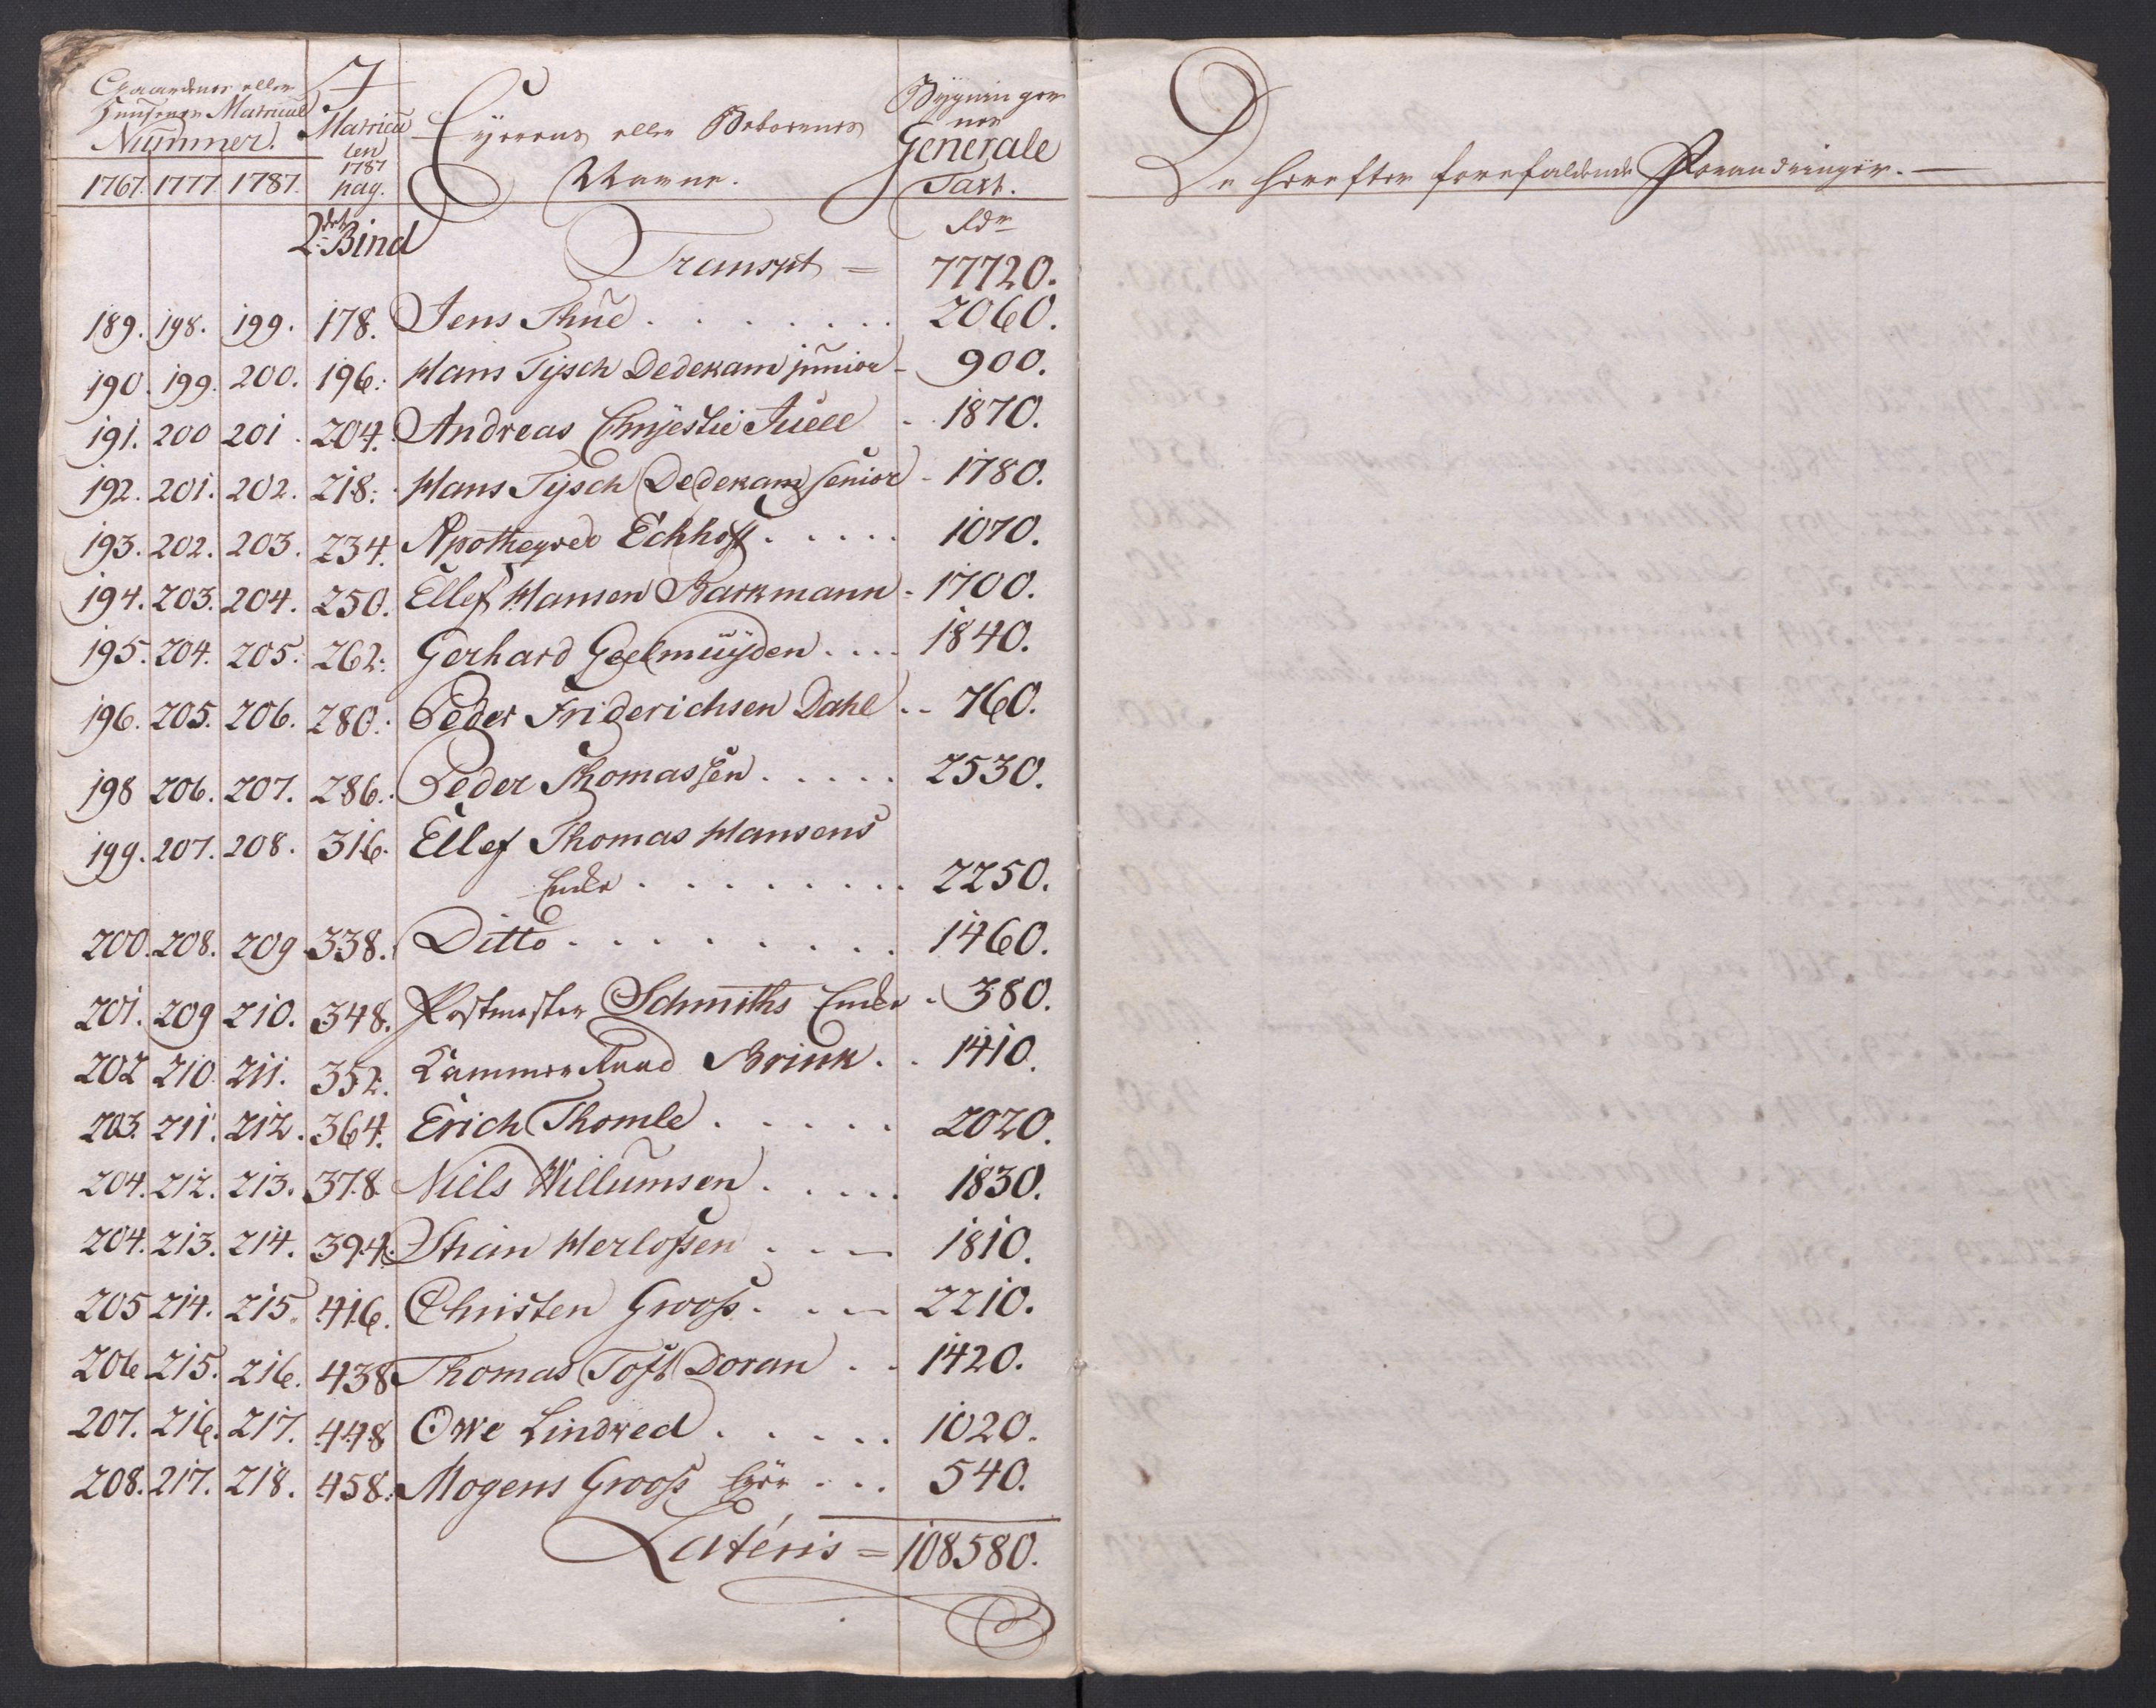 Gaardenes eller
Huusenes Matricul
Nummer.
1767. 1777. 1787.
I
Matricu
len
1787
pag.
Eyerens eller Beboerens
Navne.
Bygninger
nes
Generale
Taxt.
2det Bind
Rdr
Transpt = 77720.
189. 198. 199. 178. Jens Thue . . . . . . . 2060.
190. 199. 200. 196. Hans Tÿsch Dedekam junior - 900.
191. 200 201. 204. Andreas Chrÿestie Juell - 1870.
192. 201. 202. 218. Hans Tÿsch Dedekam senior - 1780.
193. 202. 203. 234. Apotheqver Eckhoff . . . . . 1070.
194. 203. 204. 250. Ellef Hansen Barkmann - 1700.
195. 204. 205. 262. Gerhard Geelmuÿden . . . . 1840.
196. 205. 206. 280. Peder Friderichsen Dahl . . 760.
198 206. 207. 286. Peder Thomassen . . . . . 2530.
199. 207. 208. 316. Ellef Thomas Hansens
Enke . . . . . . . . . 2250.
200. 208. 209 338. Ditto . . . . . . . . . 1460.
201. 209 210. 348. Postmester Schmiths Enke . 380.
202 210 211. 352. Kammer Raad Brink . . 1410.
203. 211. 212. 364. Erich Thomle . . . . . 2020.
204. 212. 213. 378 Niels Willumsen . . . . . 1830.
204. 213. 214. 394. Stian Herlofsen . . . 1810.
205 214. 215. 416. Christen Grooss . . . 2210.
206 215. 216. 438 Thomas Toft Doran . . 1420.
207. 216. 217. 448 Owe Lindved . . . . . 1020.
208. 217. 218. 458. Mogens Grooss . . . 540.
Lateris = 108580.
De herefter forefaldende Forandringer. —